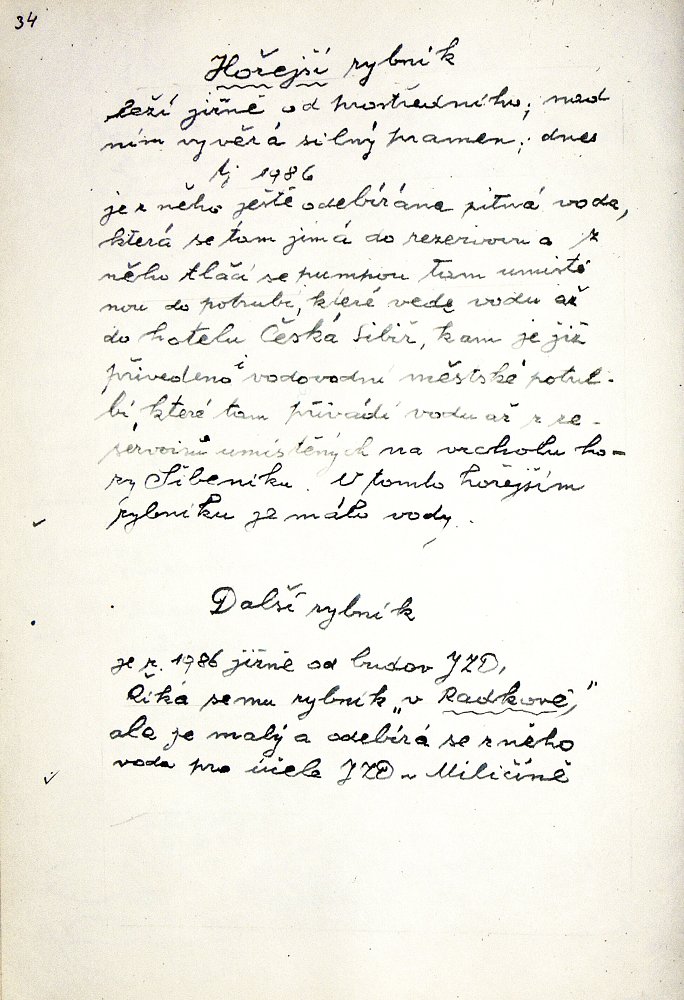 34
Hořejší rybník
leží jižně od prostředního; nad
ním vyvěrá silný pramen; dnes
tj 1986
je z něho ještě odebírána pitná voda,
která se tam jímá do rezervoiru a z
něho tlačí se pumpou tam umístě
nou do potrubí, které vede vodu až
do hotelu Česká Sibiř, kam je již
přivedeno i vodovodní městské potru-
bí které tam přivádí vodu až z re-
servoirů umístěných na vrcholu ho-
ry Šibeníku. V tomto hořejším
rybníku je málo vody.
Další rybník
je r. 1986 jižně od budov JZD,
Říká se mu rybník „v Radkově,"
ale je malý a odebírá se z něho
voda pro účele JZD v Miličíně